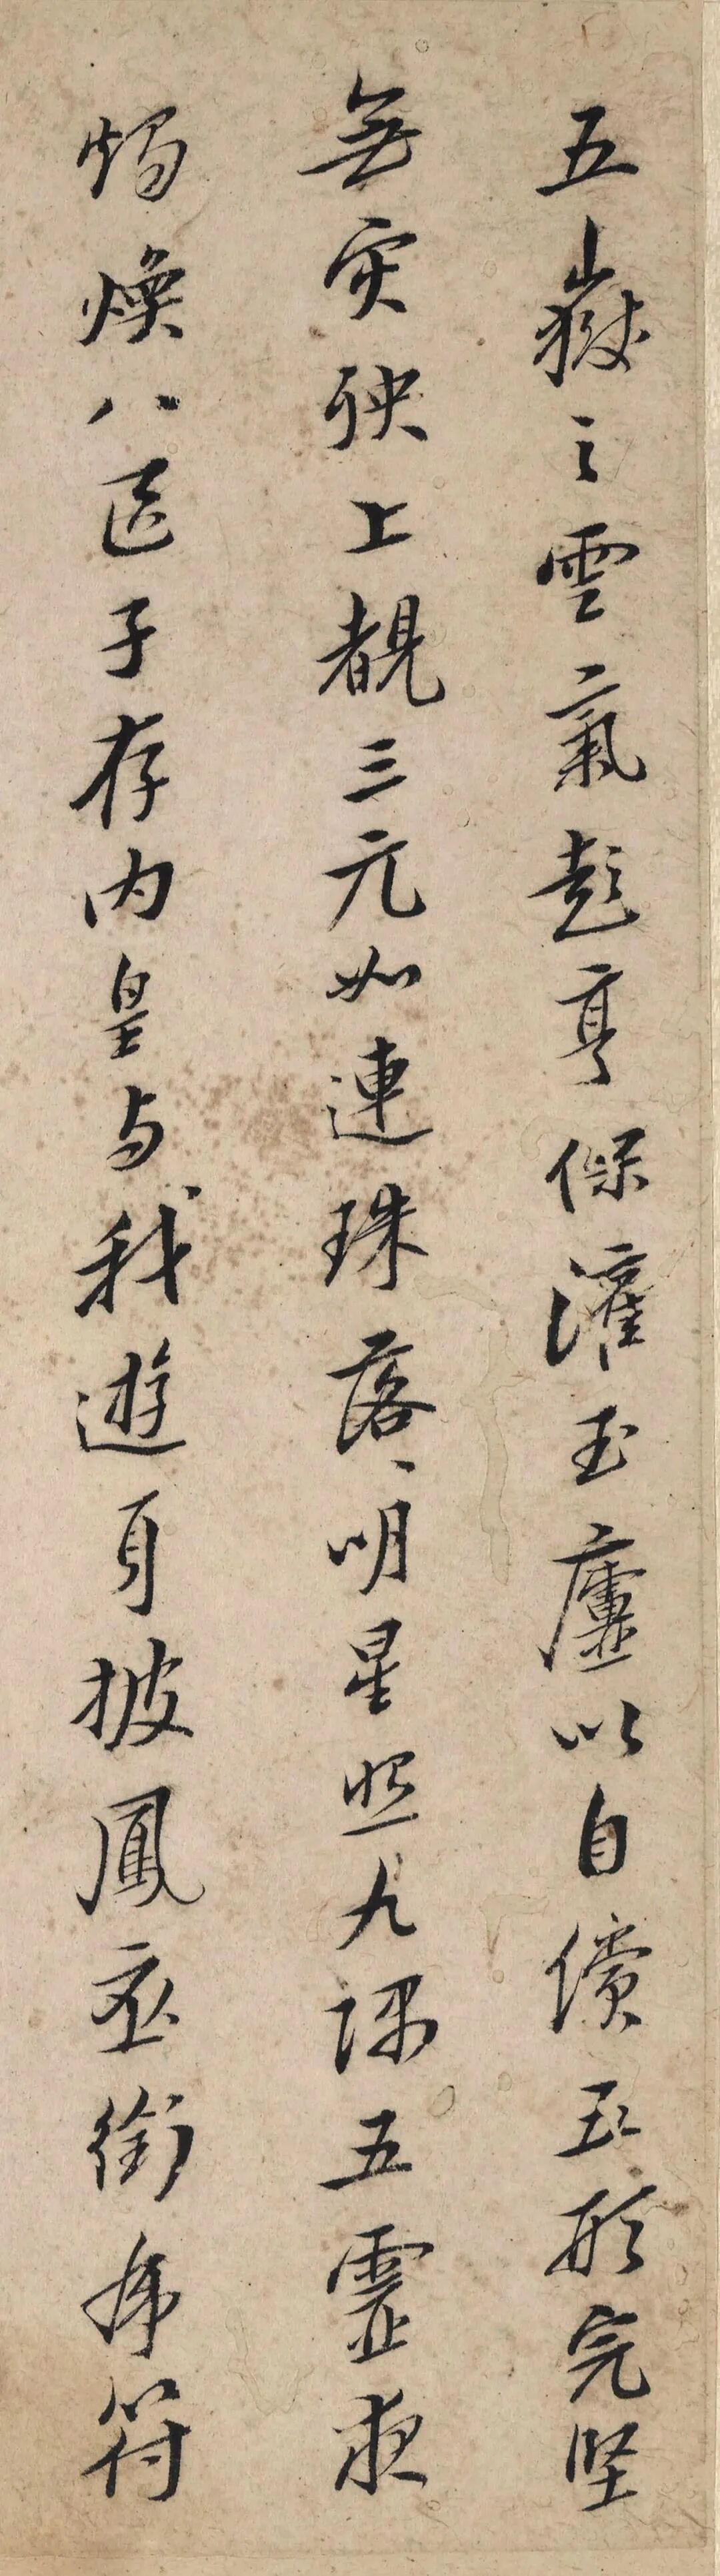 五嶽之雲氣彭亨保灌玉廬以自償五形完堅
無灾殃上覩三元如連珠落々明星照九隅五靈夜
燭煥八區子存内皇与我遊身披鳳衣銜虎符